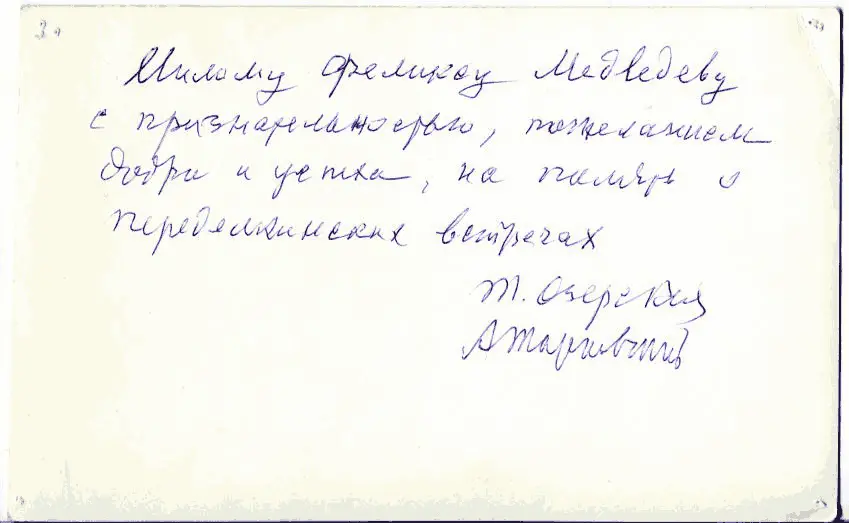 Милому Феликсу Медведеву
с признательностью, пожеланием
добра и успеха, на память о
переделкинских встречах
Т. Озерская
АТарковский